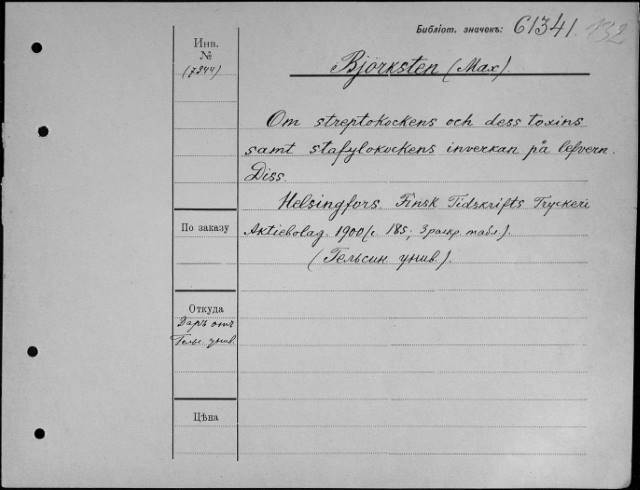 Библіот. значекъ: 61341. 132
Инв.
№
(7344)
Björksten (Max).
Om streptokockens och dess toxins
samt stafylokockens inverkan på lefvern.
Diss.
Helsingfors. Finsk Tidskrifts Tryckeri
Aktiebolag. 1900 (с. 185; 3 раскр. табл.).
(Гельсин. унив.).
По заказу
Откуда
Даръ отъ
Гельс. унив.
Цѣна